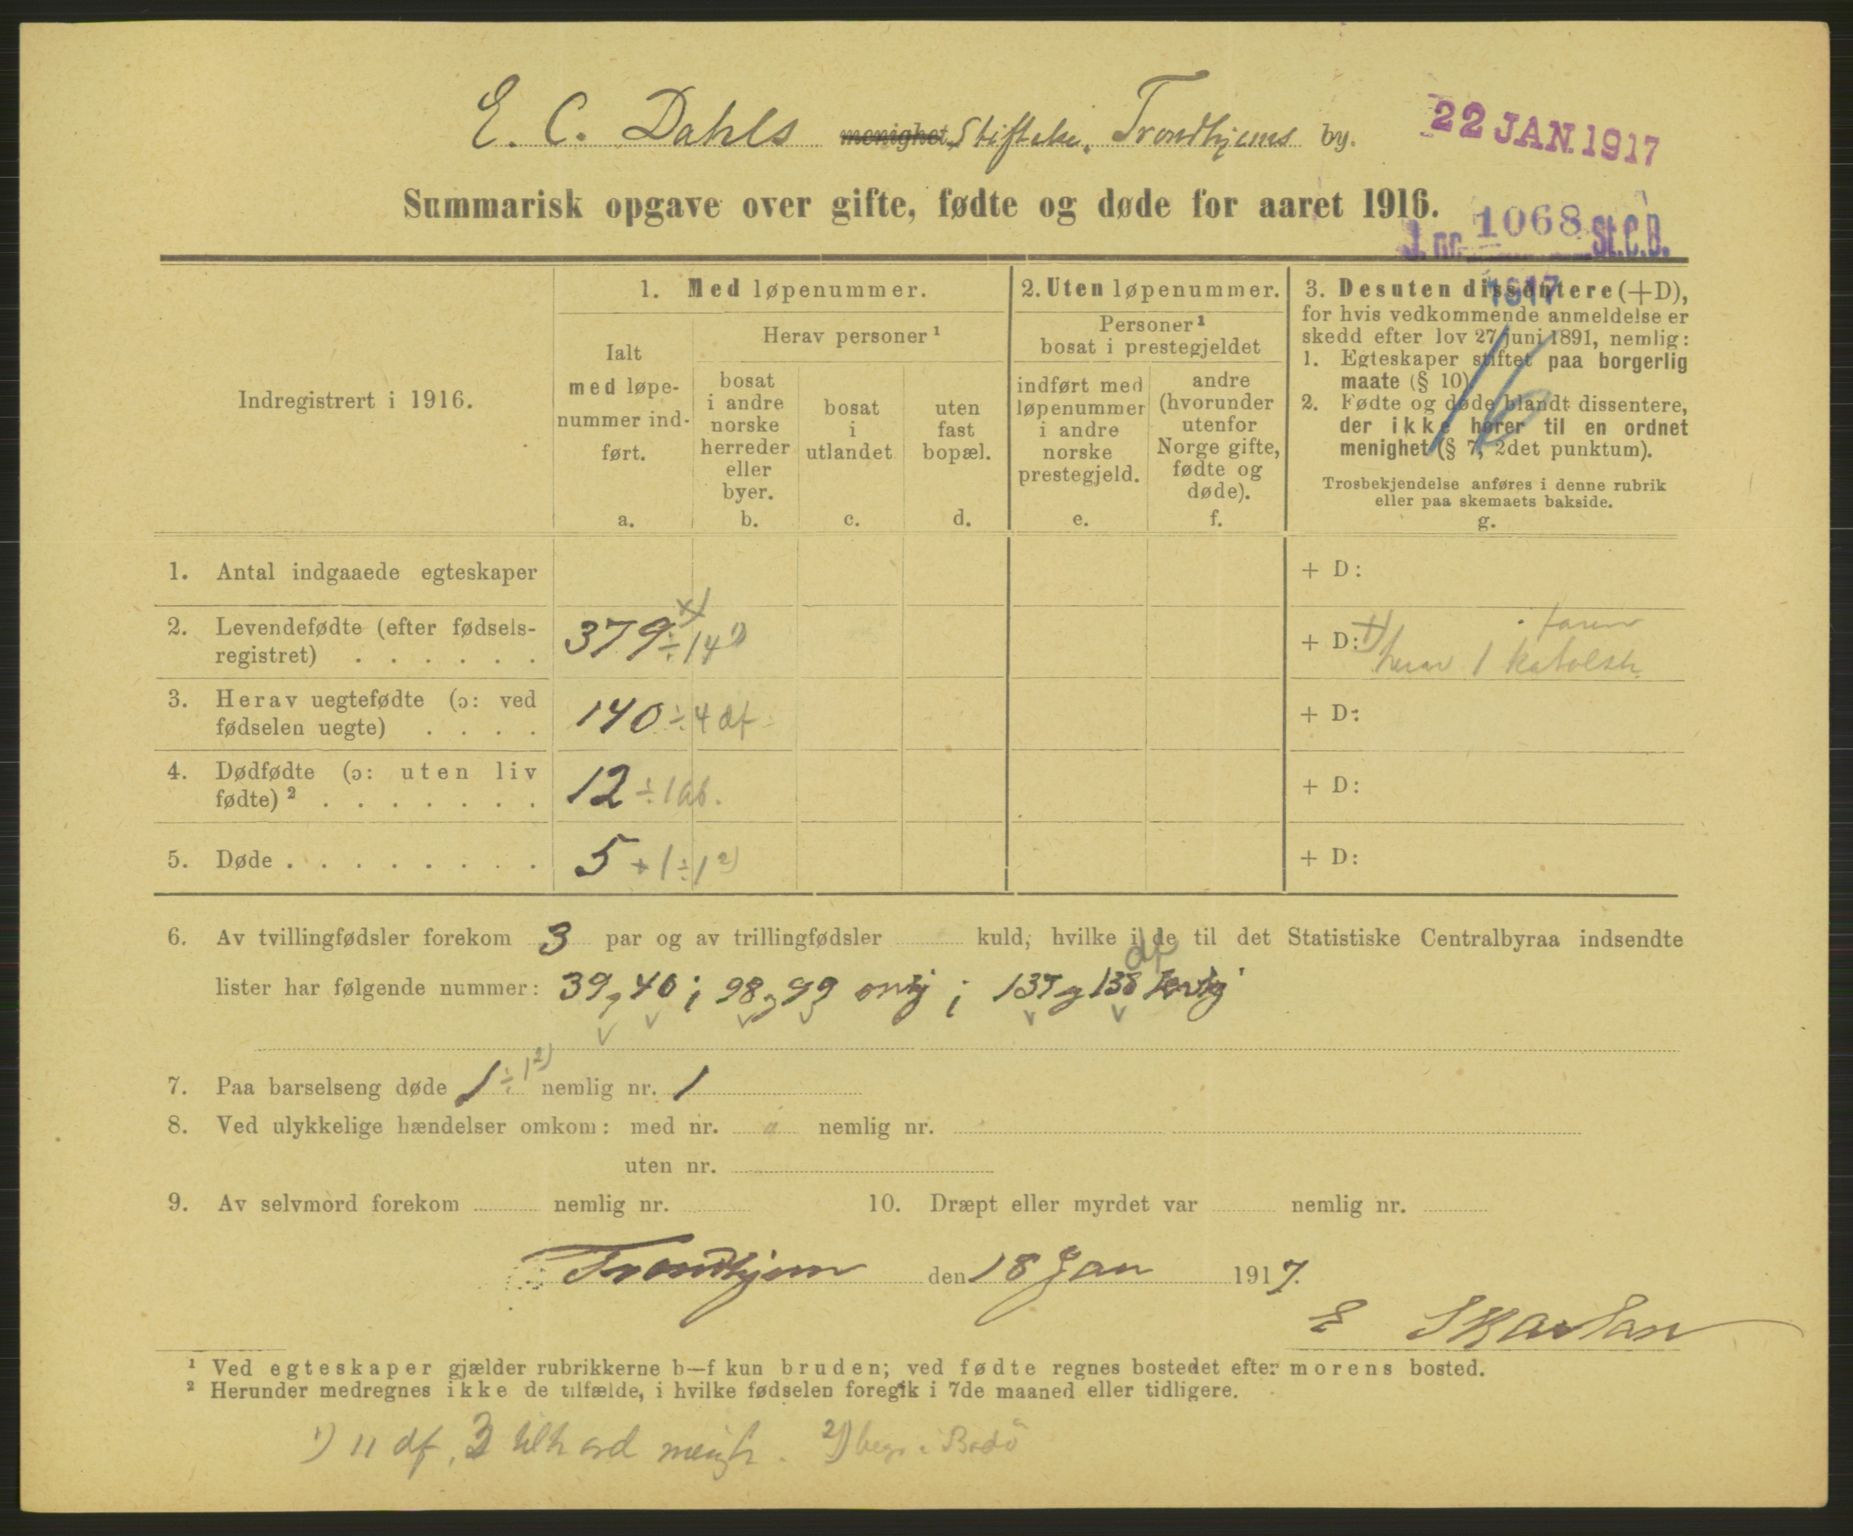 E. C. Dahls menighet, Stiftelse, Trondhjems by.
22 JAN. 1917
Summarisk opgave over gifte, fødte og døde for aaret 1916.
J. nr. 1068 St.C.B.
1917
16
Indregistrert i 1916.
1. Med løpenummer.
Ialt
med løpe-
nummer ind-
ført.
a.
Herav personer ¹
bosat
i andre
norske
herreder
eller
byer.
b.
bosat
i
utlandet
c.
uten
fast
bopæl.
d.
2. Uten løpenummer.
Personer ¹
bosat i prestegjeldet
indført med
løpenummer
i andre
norske
prestegjeld.
e.
andre
(hvorunder
utenfor
Norge gifte,
fødte og
døde).
f.
3. Desuten dissentere (+D),
for hvis vedkommende anmeldelse er
skedd efter lov 27 juni 1891, nemlig:
1. Egteskaper stiftet paa borgerlig
maate (§ 10)
2. Fødte og døde blandt dissentere,
der ikke hører til en ordnet
menighet (§ 7, 2det punktum).
Trosbekjendelse anføres i denne rubrik
eller paa skemaets bakside.
g.
1. Antal indgaaede egteskaper
+ D:
2. Levendefødte (efter fødsels-
registret) . . . . . .
379 ÷ 14 ¹)
+ D: herav 1 katolsk
3. Herav uegtefødte (ɔ: ved
fødselen uegte) . . . .
140 ÷ 4 df
+ D:
4. Dødfødte (ɔ: uten liv
fødte) ² . . . . . . .
12 ÷ 1 ab.
+ D:
5. Døde . . . . . . . . .
5 + 1 ÷ 1 ²)
+ D:
6. Av tvillingfødsler forekom 3 par og av trillingfødsler kuld, hvilke i de til det Statistiske Centralbyraa indsendte
df
lister har følgende nummer: 39 og 40; 98 og 99; 137 og 138
7. Paa barselseng døde 1 ÷ 1 ²) nemlig nr. 1
8. Ved ulykkelige hændelser omkom: med nr. nemlig nr.
uten nr.
9. Av selvmord forekom nemlig nr.
10. Dræpt eller myrdet var nemlig nr.
Trondhjem den 18 Jan 1917.
E Skarlan
¹ Ved egteskaper gjælder rubrikkerne b—f kun bruden; ved fødte regnes bostedet efter morens bosted.
² Herunder medregnes ikke de tilfælde, i hvilke fødselen foregik i 7de maaned eller tidligere.
¹) 11 df, 3 tilh ord menigh. ²) begr. i Bodö